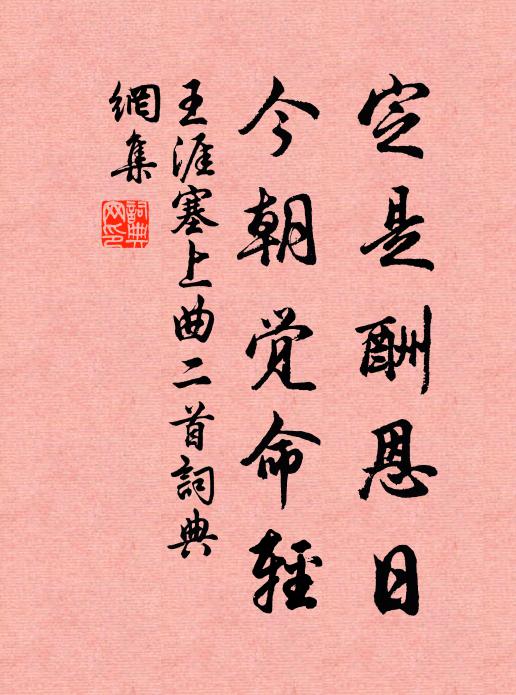 定是酬恩日
今朝觉命轻
王涯塞上曲二首詞典
網集
詞典
网印